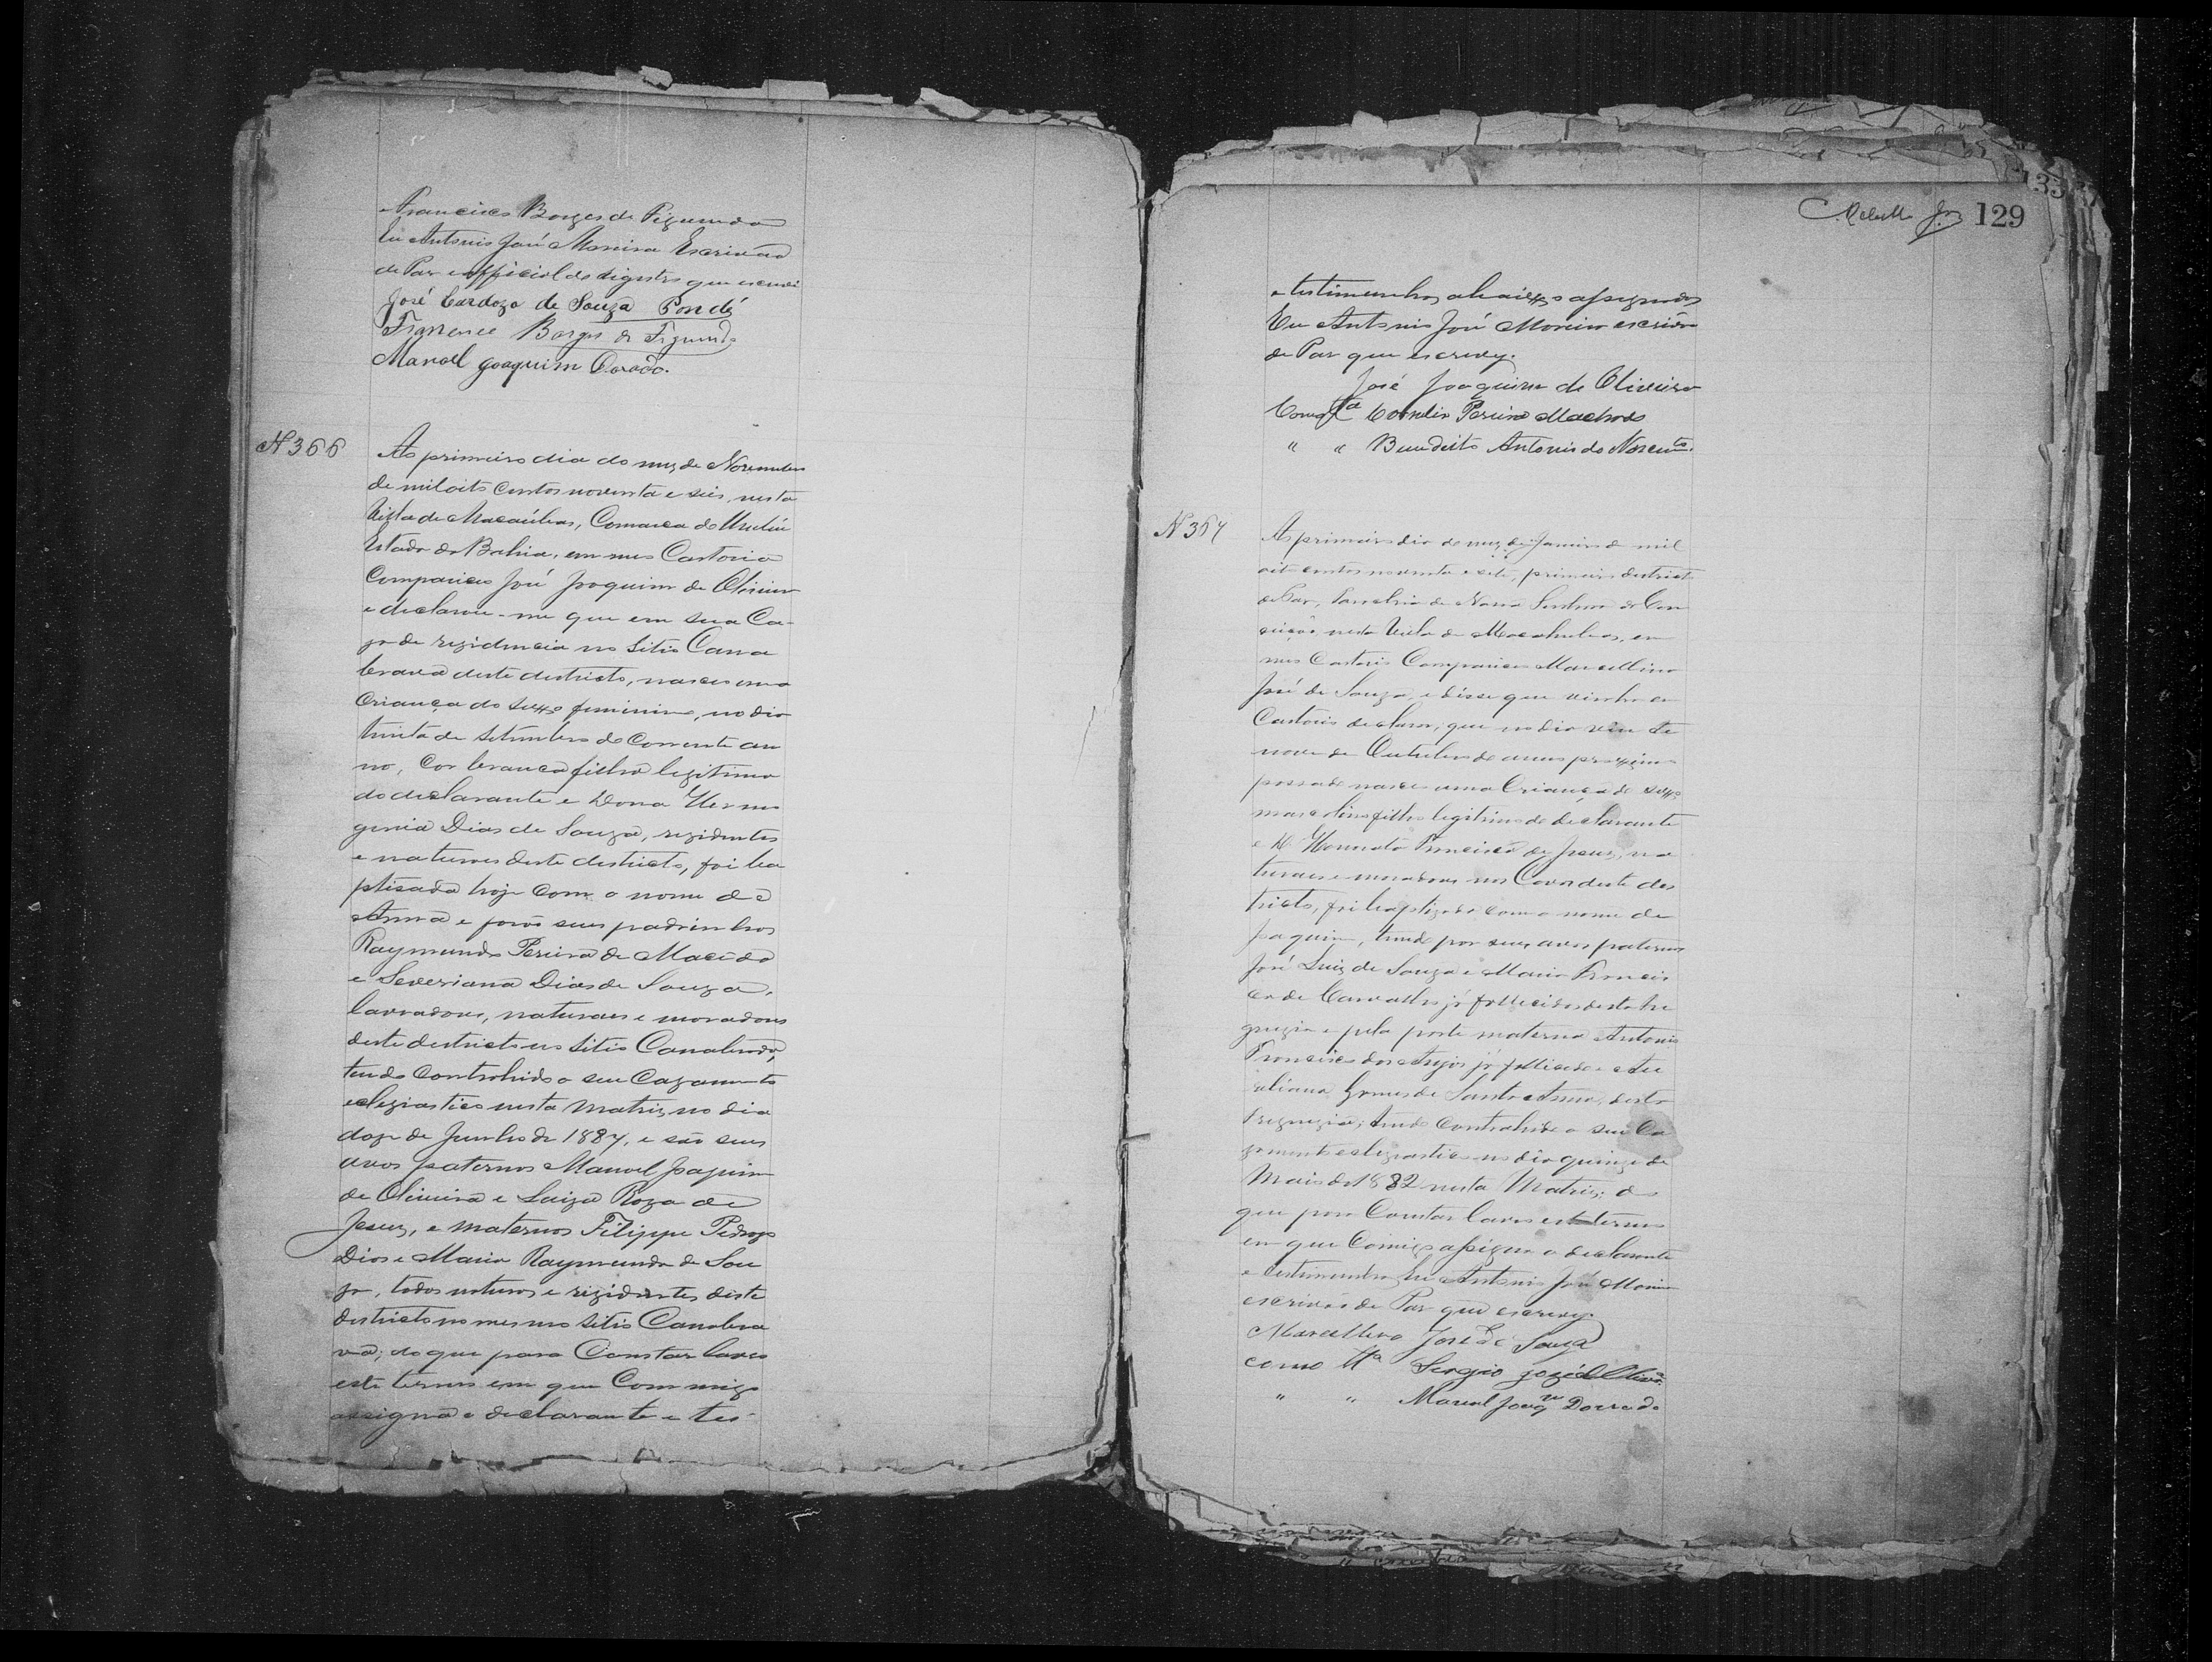 Francisco Borges de Figueredo
Eu Antonio José Moreira Escrivão
de Paz e official do registro que escrevi
José Cardozo de Souza Pondé
Francisco Borges de Figueredo
Manoel Joaquim Dorado.
N 366
Ao primeiro dia do mez de Novembro
de mil oito centos noventa e seis, nesta
Villa de Macaúbas, Comarca de Urubú
Estado da Bahia, em meu Cartorio
Compareceo José Joaquim de Oliveira
e declarou-me que em sua Ca-
za de rezidencia no sitio Canna
brava deste destricto, nasceo uma
Criança do sexo feminino, no dia
trinta de Setembro do Corrente an
no, Cor branca filha legitima
do declarante e Dona Herme
genia Dias de Souza, rezidentes
e naturaes deste destricto, foi ba
ptisada hoje com o nome de
Anna e forão seus padrinhos
Raymundo Pereira de Macêdo
e Severiana Dias de Souza,
lavradores, naturaes e moradores
deste destricto no sitio Canabrava,
tendo Contrahido o seu Cazamento
eclegiastico nesta Matriz no dia
doze de Junho de 1887, e são seus
avos paternos Manoel Joaquim
de Oliveira e Luiza Roza de
Jesuz, e maternos Filippe Pedrozo
Dias e Maria Raymunda de Sou
za, todos naturaes e rezidentes deste
destricto no mesmo sitio Canabra
va; do que para Constar lavro
este termo em que Commigo
assigna o declarante e tes-
129
e testimunhas abaixo assignados
Eu Antonio José Moreira escrivão
de Paz que escrevy.
José Joaquim de Oliveira
Como tª Pereira Machado
" " Benedicto Antonio do Nascimto.
N 367
Ao primeiro dia do mez de Janeiro de mil
oito centos noventa e sete, primeiro destricto
de Paz, Parochia de Nossa Senhora da Con
ceição, nesta Villa de Macahubas, em
meu Cartorio Compareceo Marcellino
José de Souza, e disse que vinha em
Cartorio declarar, que no dia vinte
nove de Outubro do anno proximo
passado nasceo uma Criança do sexo
masculino filho legitimo do declarante
e D Honorata Francisca de Jesus, na
turaes e moradores nos Cavos deste des
tricto, foi baptizado com o nome de
Joaquim, tendo por seus avos paternos
José Luiz de Souza e Maria Francis
ca de Carvalho já fallecidos desta fre
guezia e pela parte materna Antonio
Francisco dos Anjos já fallecido e
Juliana Gomes de Santa Anna, desta
Freguezia, tendo Contrahido o seu Ca
zamento eclegiastico no dia quinze de
Maio de 1882 nesta Matriz; do
que para Constar lavro este termo
em que Comigo assigna o declarante
e testimunhas Eu Antonio José Moreira
escrivão de Paz que escrevy.
Marcellino José de Souza
como ttª Sergio José de Olivrª
" " Manoel Joaqm Dorado